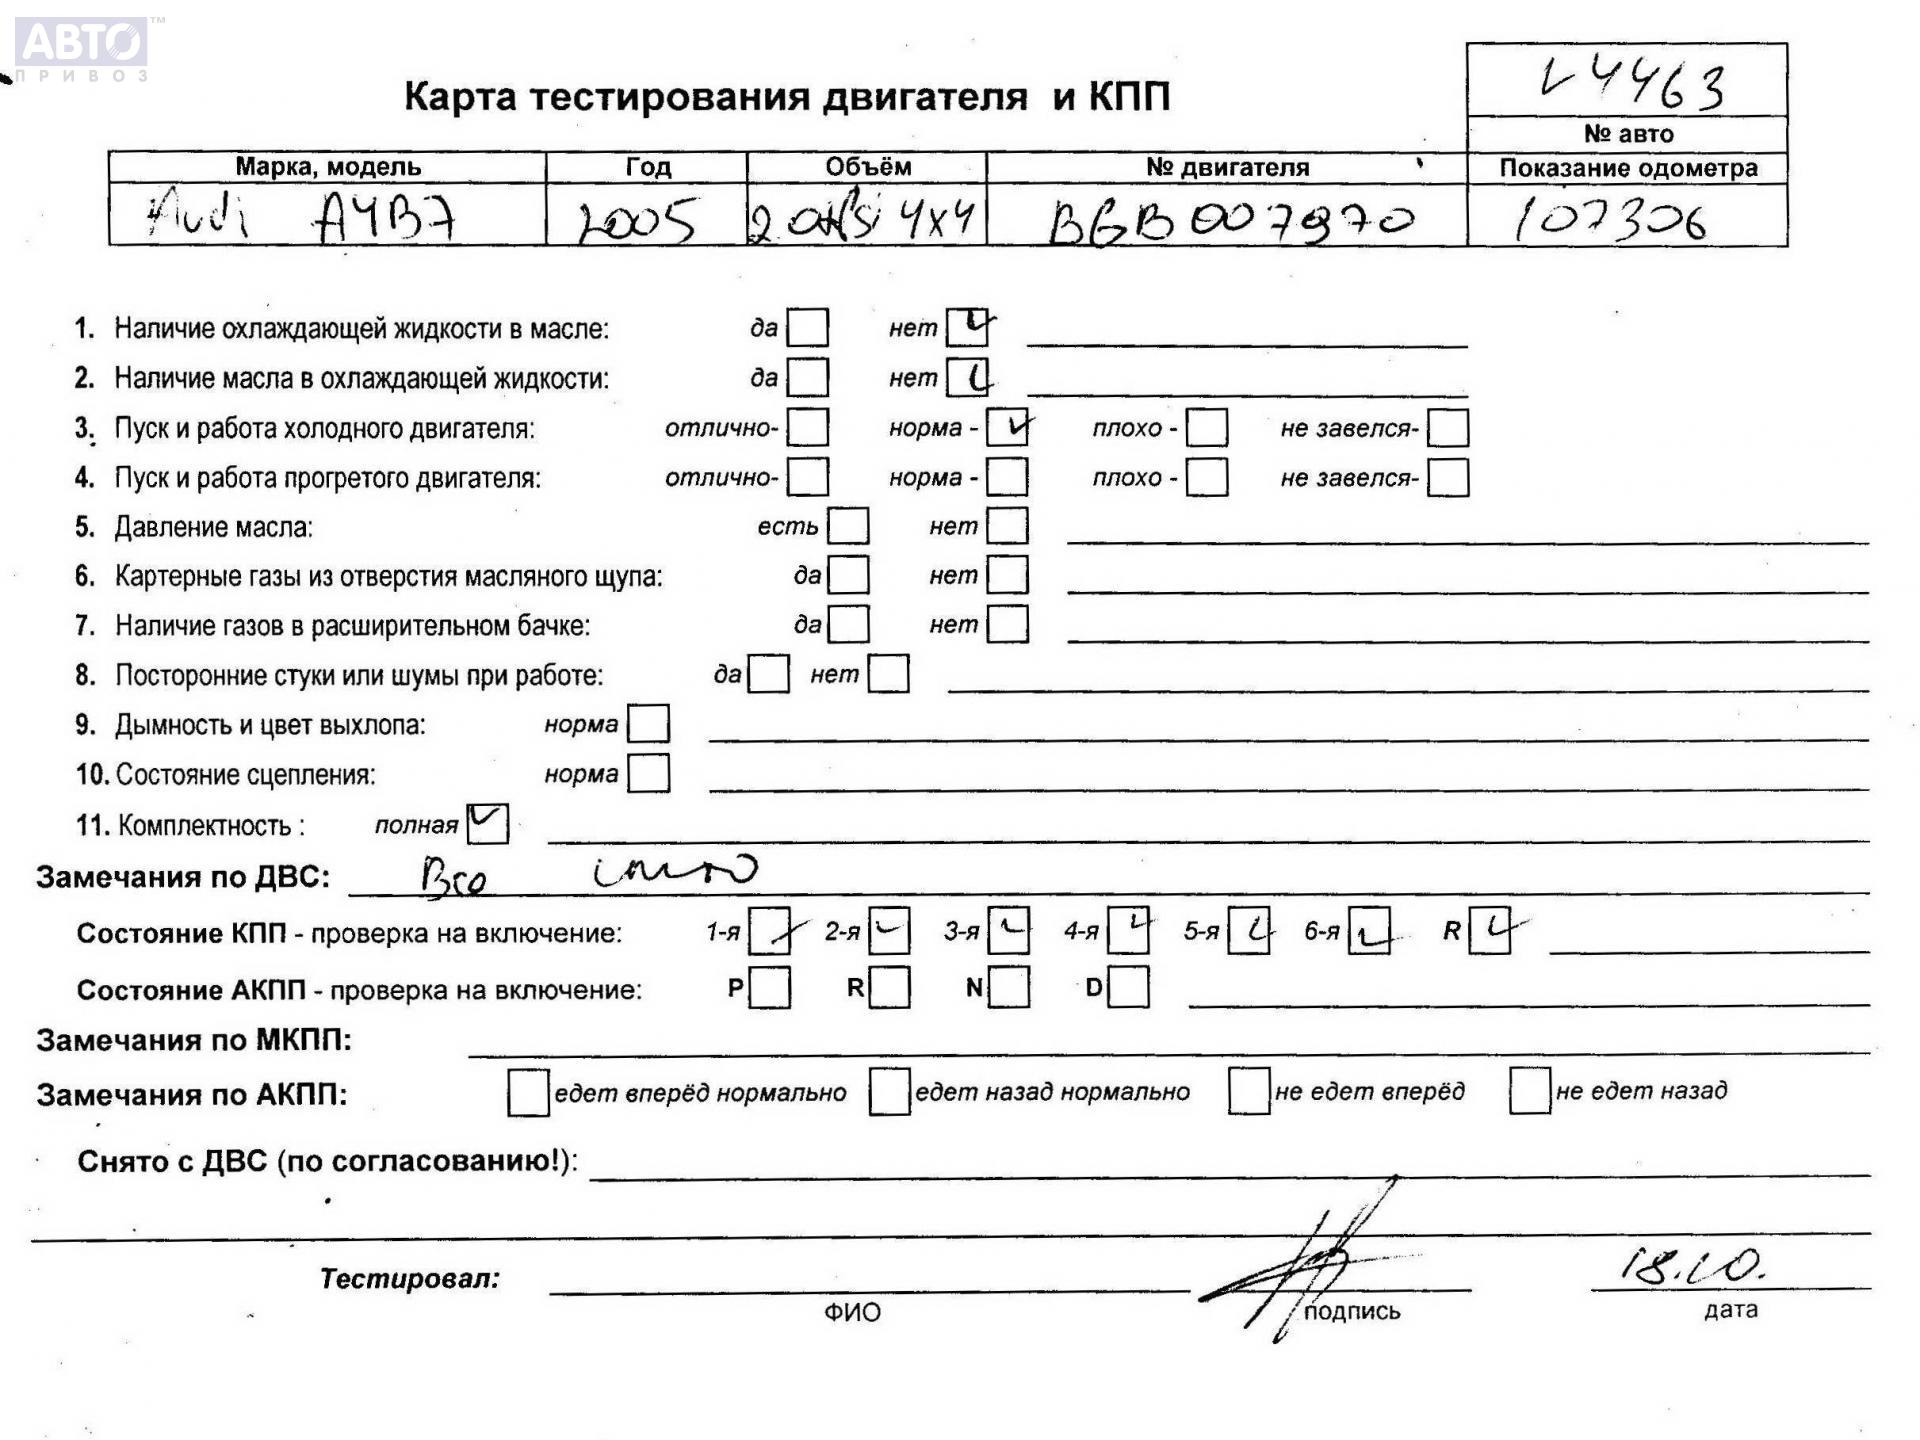 АВТО™
ПРИВОЗ
Карта тестирования двигателя и КПП
L4463
№ авто
Марка, модель Год Объём № двигателя Показание одометра
Audi A4B7 2005 2.0 tfsi 4x4 BGB007970 107306
1. Наличие охлаждающей жидкости в масле: да нет
2. Наличие масла в охлаждающей жидкости: да нет
3. Пуск и работа холодного двигателя: отлично- норма - плохо - не завелся-
4. Пуск и работа прогретого двигателя: отлично- норма - плохо - не завелся-
5. Давление масла: есть нет
6. Картерные газы из отверстия масляного щупа: да нет
7. Наличие газов в расширительном бачке: да нет
8. Посторонние стуки или шумы при работе: да нет
9. Дымность и цвет выхлопа: норма
10. Состояние сцепления: норма
11. Комплектность : полная
Замечания по ДВС:
Состояние КПП - проверка на включение: 1-я 2-я 3-я 4-я 5-я 6-я R
Состояние АКПП - проверка на включение: P R N D
Замечания по МКПП:
Замечания по АКПП: едет вперёд нормально едет назад нормально не едет вперёд не едет назад
Снято с ДВС (по согласованию!):
Тестировал: 18.10.
ФИО подпись дата